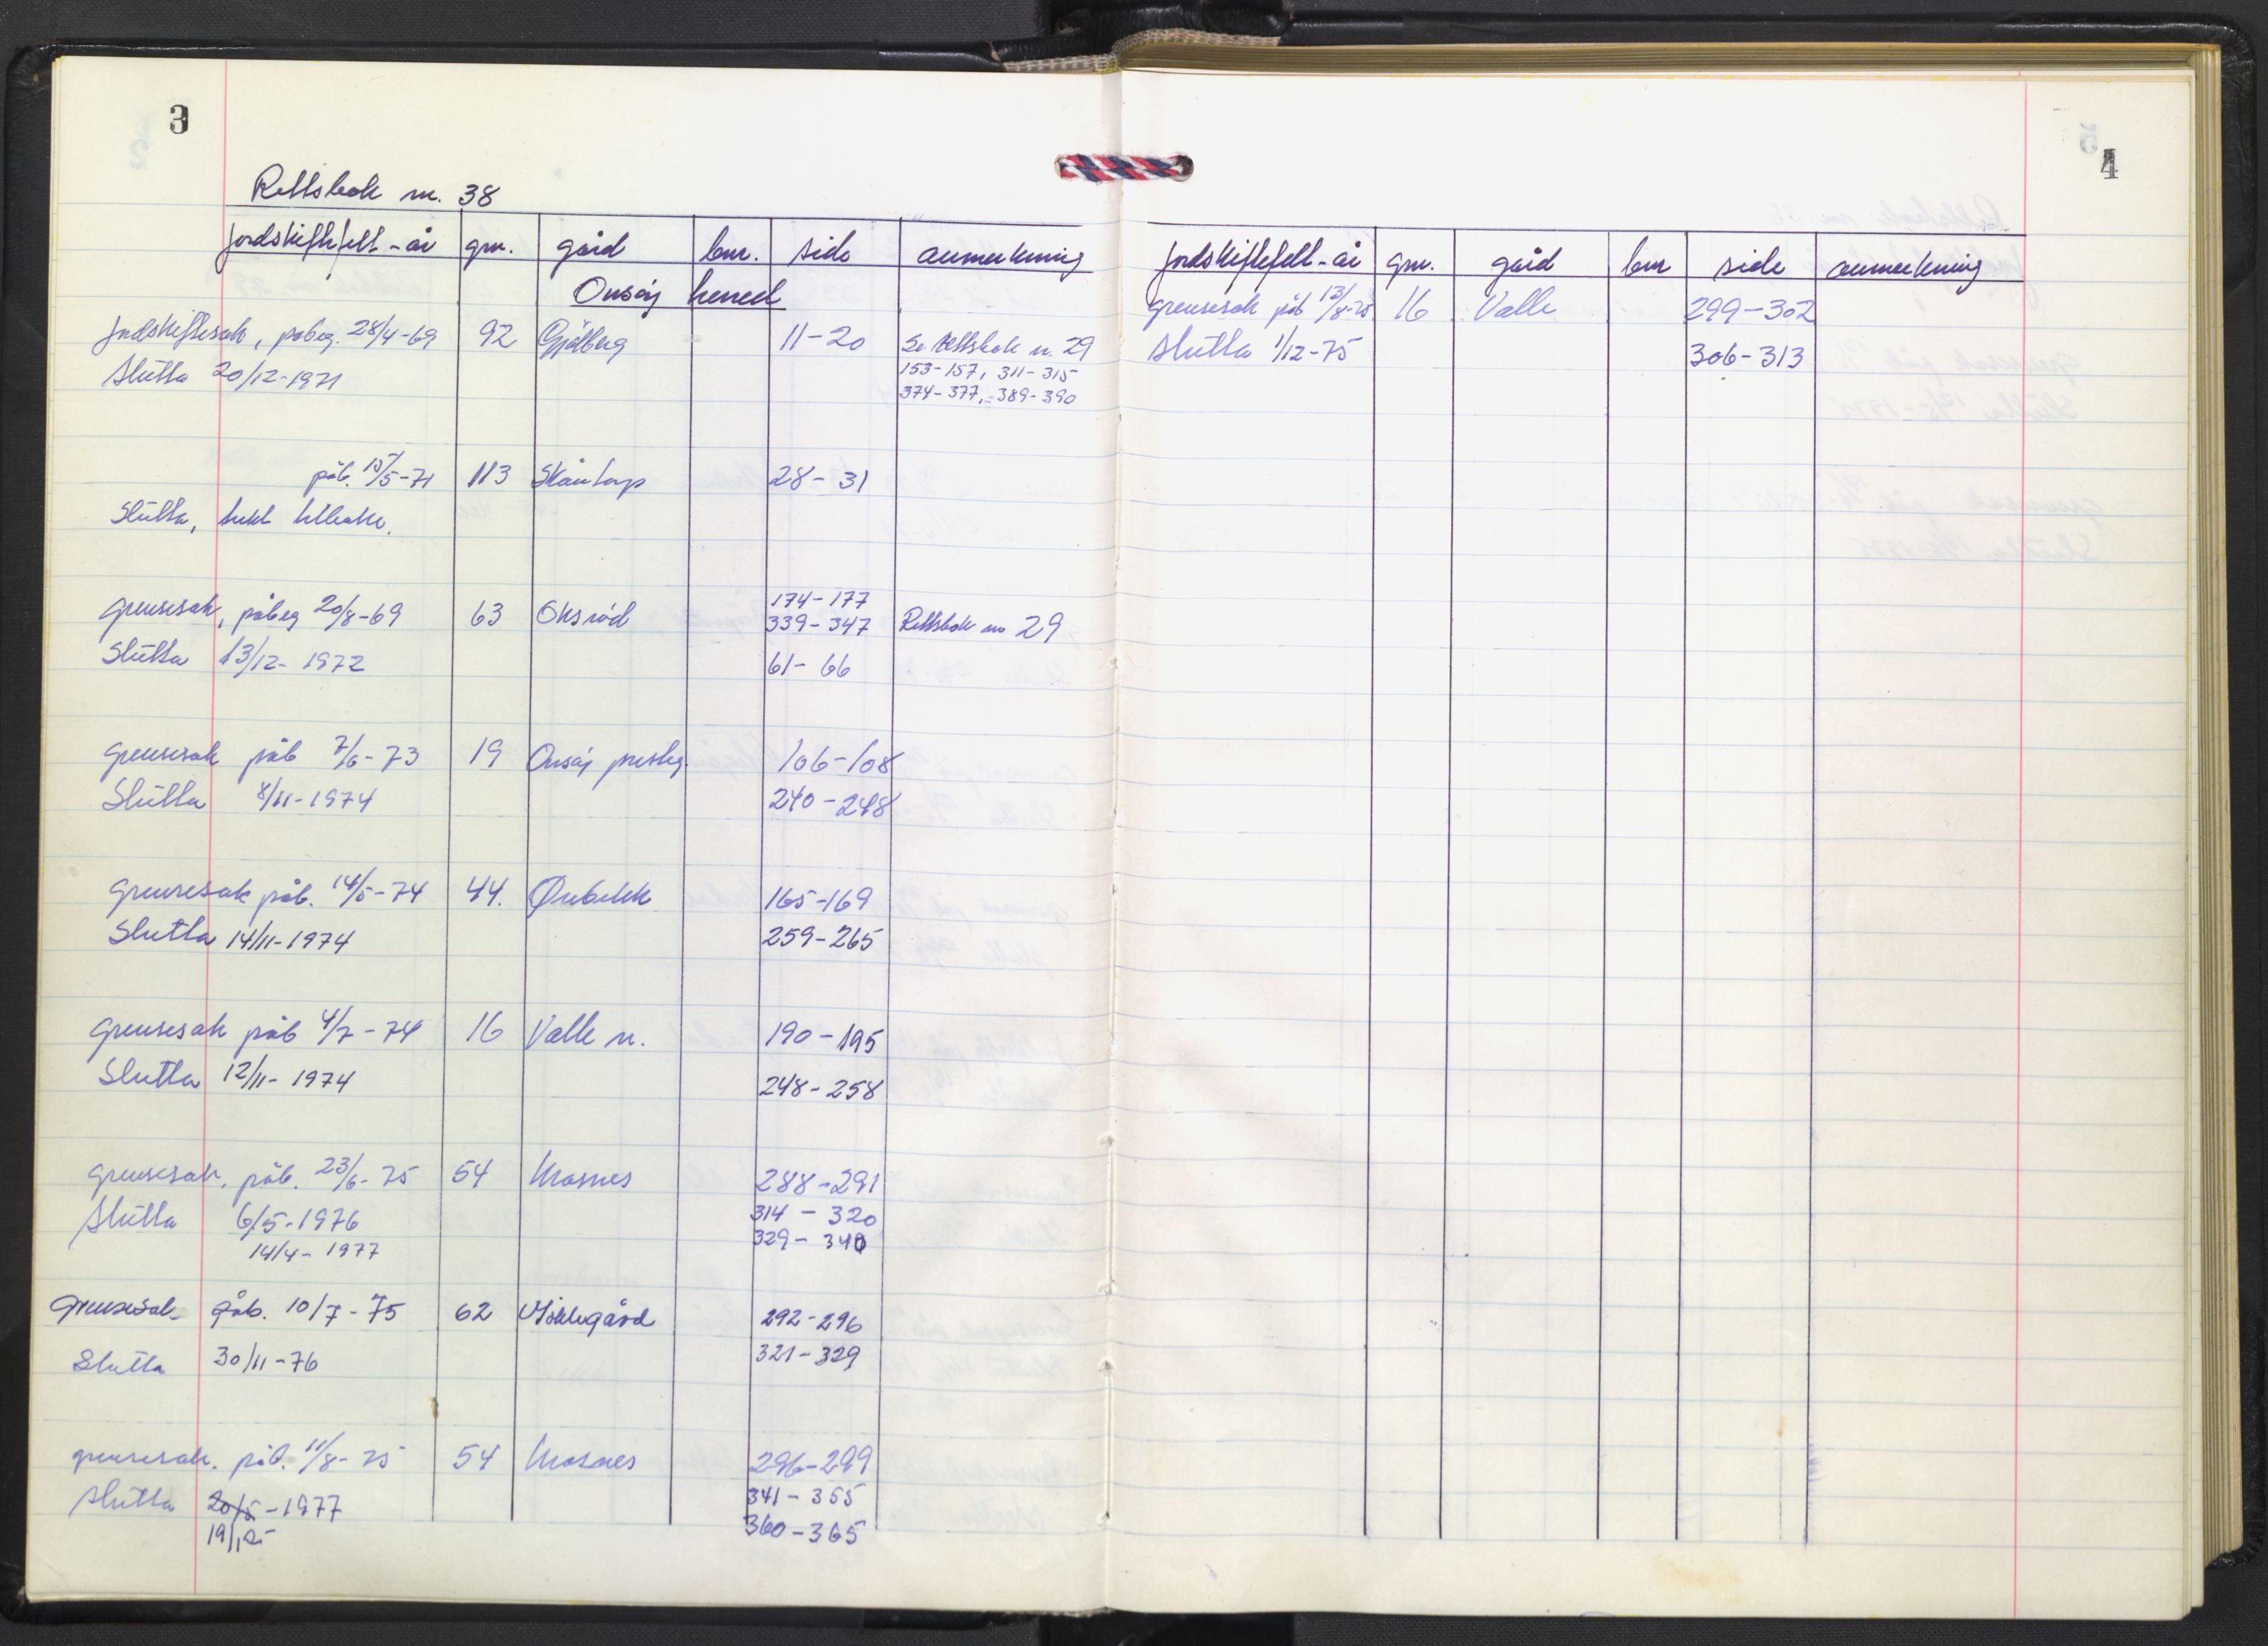 3
Rettsbok nr. 38
Jordskiftefelt - år gnr. gård bnr. side anmerkning
Onsøy herred
Jordskiftesak, påbeg. 28/4-69 92 Gjølberg 11-20 Se rettsbok nr. 29
Slutta 20/12-1971 153-157, 311-315
374-377, 389-390
påb. 15/5-71 113 Skåntorp 28-31
Slutta, trekt tilbake.
174-177
Grensesak, påbeg 20/8-69 63 Oksrød 339-347 Rettsbok nr 29
Slutta 13/12-1972 61-66
Grensesak påb 7/6-73 19 Onsøy presteg. 106-108
Slutta 8/11-1974 240-248
Grensesak påb. 14/5-74 44. Ørebekk 165-169
Slutta 14/11-1974 259-265
Grensesak påb 4/7-74 16 Valle n. 190-195
Slutta 12/11-1974 248-258
Grensesak, påb. 23/6-75 54 Mosnes 288-291
Slutta 6/5-1976 314-320
14/4-1977 329-340
Grensesak påb. 10/7-75 62 292-296
Slutta 30/11-76 321-329
grensesak, påb. 11/8-75 54 Mosnes 296-299
Slutta 20/5-1977 341-355
360-365
4
Jordskiftefelt - år gnr. gård bnr side anmerkning
Grensesak påb 13/8-75 16 Valle 299-302
Slutta 1/12-75 306-313